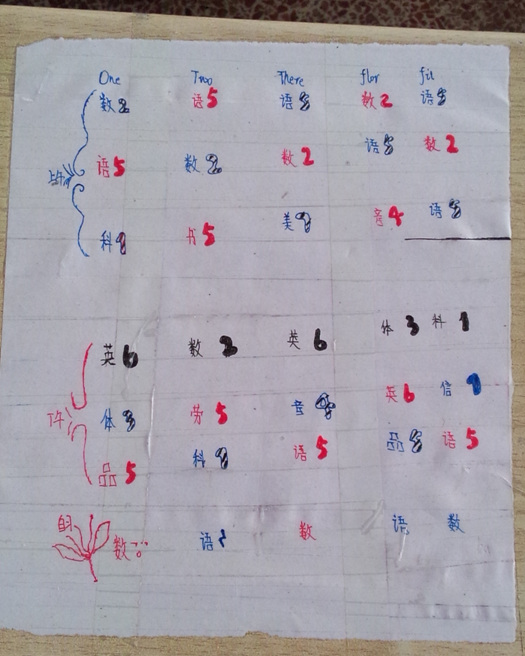 One Two There flor fit
数2 语5 语5 数2 语5
上午
语5 数2 数2 语5 数2
科1 5 美9 音4 语5
英6 数2 英6 体3 科1
下午
体3 劳5 音4 英6 信1
品5 科9 语5 品5 语5
自习
数 语 数 语 数